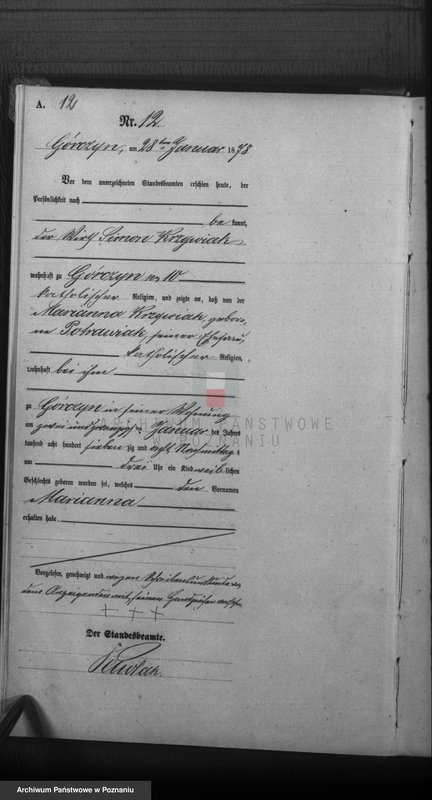 A. 12
Nr. 12
Górczyn, am 28ten Januar 1878
Vor dem unterzeichneten Standesbeamten erschien heute, der
Persönlichkeit nach
bekannt,
der Wirth Simon Krzywiak
wohnhaft zu Górczyn No 10
katholischer Religion, und zeigte an, daß von der
Marianna Krzywiak, gebore-
ne Potrawiak, seiner Ehefrau,
katholischer Religion,
wohnhaft bei ihm
zu Górczyn in seiner Wohnung
am zwei und zwanzigsten Januar des Jahres
tausend acht hundert siebenzig und acht Nachmittags
um drei Uhr ein Kind weiblichen
Geschlechts geboren worden sei, welches den Vornamen
Marianna
erhalten habe.
Vorgelesen, genehmigt und wegen Schreibensunkunde von
dem Anzeigenden mit seinem Handzeichen versehen
+ + +
Der Standesbeamte.
ARCHIWUM PAŃSTWOWE
W POZNANIU
Archiwum Państwowe w Poznaniu